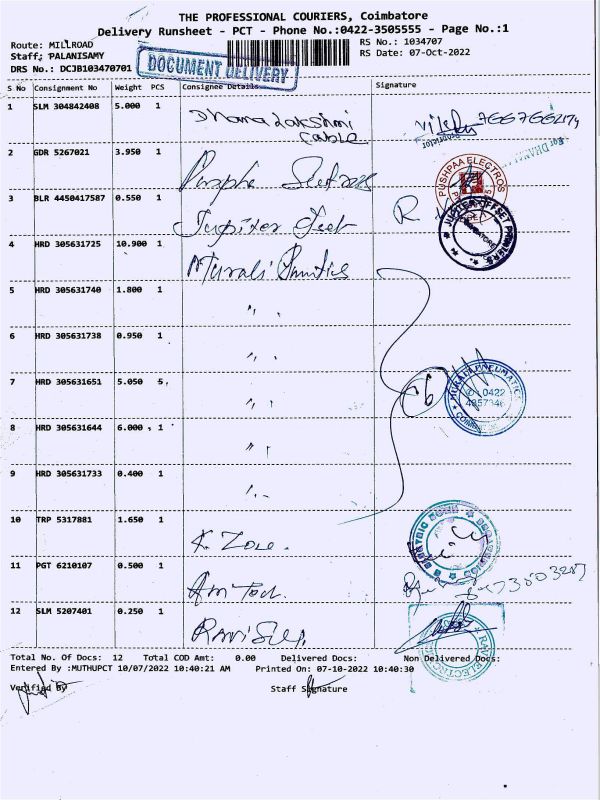 THE PROFESSIONAL COURIERS, Coimbatore
Delivery Runsheet - PCT - Phone No.:0422-3505555 - Page No.:1
Route: MILLROAD RS No.: 1034707
Staff: PALANISAMY RS Date: 07-Oct-2022
DRS No.: DCJB103470701
DOCUMENT DELIVERY
S No Consignment No Weight PCS Consignee Details Signature
1 SLM 304842408 5.000 1 Dhana Lakshmi
Cable
2 GDR 5267021 3.950 1
PUSHPAA ELECTROS
3 BLR 4450417587 0.550 1 Jupiter R
JUPITER OFFSET PRINTERS
4 HRD 305631725 10.900 1 Murali
5 HRD 305631740 1.800 1 " "
6 HRD 305631738 0.950 1 " "
7 HRD 305631651 5.050 5 " " 6
0422
8 HRD 305631644 6.000 1 " "
9 HRD 305631733 0.400 1 " "
10 TRP 5317881 1.650 1 K. Zone.
11 PGT 6210107 0.500 1 Am Tech.
12 SLM 5207401 0.250 1 Ravi
Total No. Of Docs: 12 Total COD Amt: 0.00 Delivered Docs: Non Delivered Docs:
Entered By :MUTHUPCT 10/07/2022 10:40:21 AM Printed On: 07-10-2022 10:40:30
Verified By Staff Signature